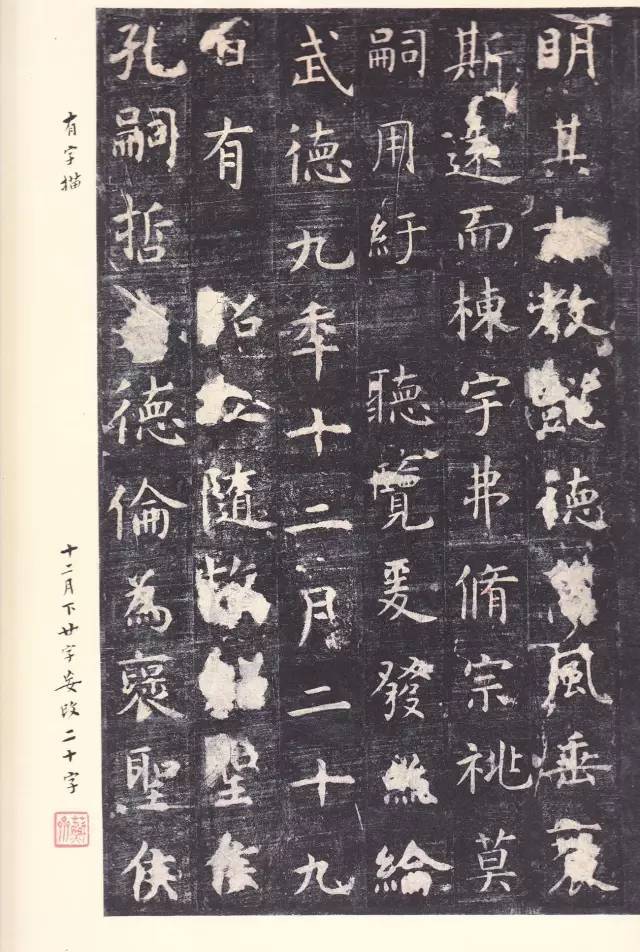 明其大教懿德風垂
斯遠而棟宇弗脩宗祧莫
嗣用紆聽覽爰發絲綸
武德九年十二月二十九
日有詔立隨故紹聖侯
孔嗣哲德倫為褒聖侯
有字描
十二月下廿字妄改二十字